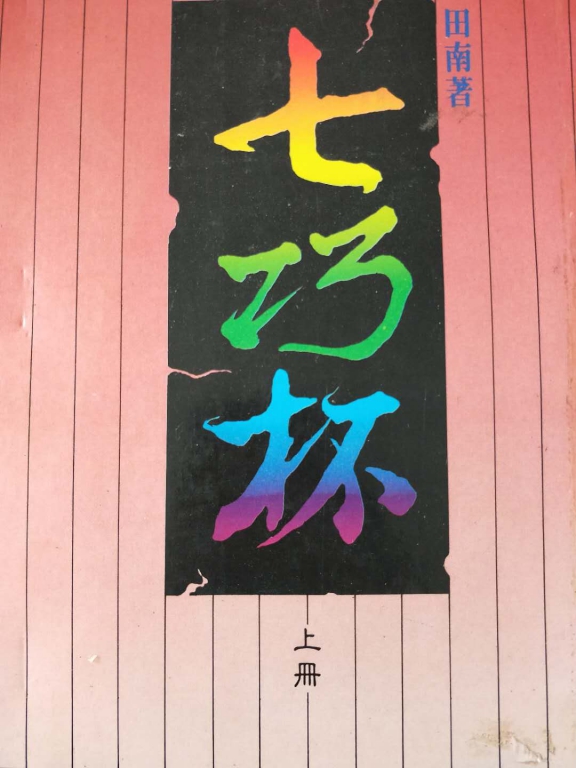 田南著
七巧杯
上冊